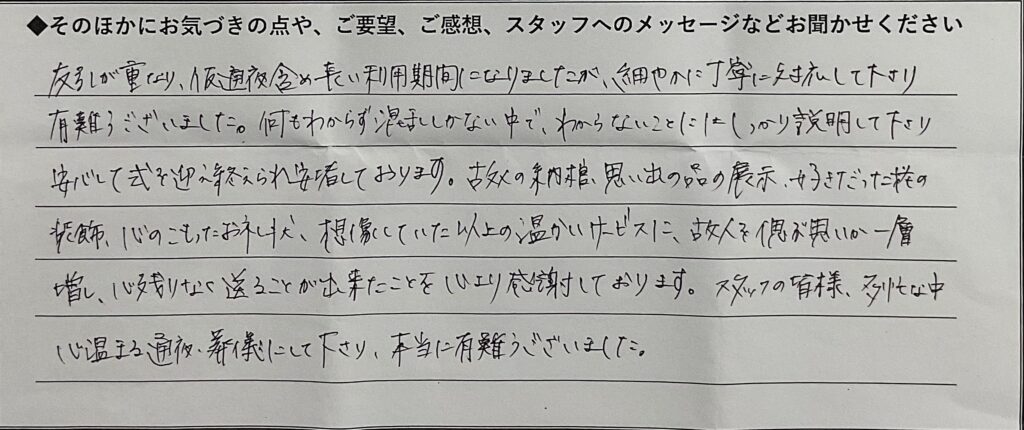 ◆そのほかにお気づきの点や、ご要望、ご感想、スタッフへのメッセージなどお聞かせください
友引が重なり、仮通夜含め長い利用期間になりましたが、細やかに丁寧に対応して下さり
有難うございました。何もわからず混乱しかない中で、わからないことにはしっかり説明して下さり
安心して式を迎え終えられ安堵しております。故人の納棺、思い出の品の展示、好きだった桜の
装飾、心のこもったお礼状、想像していた以上の温かいサービスに、故人を偲ぶ思いが一層
増し、心残りなく送ることが出来たことを心より感謝しております。スタッフの皆様、多忙な中
心温まる通夜・葬儀にして下さり、本当に有難うございました。